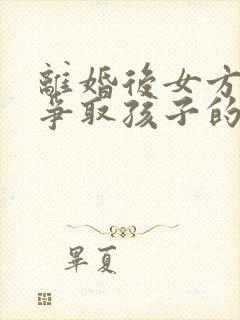 離婚後女方
爭取孩子的
畢夏